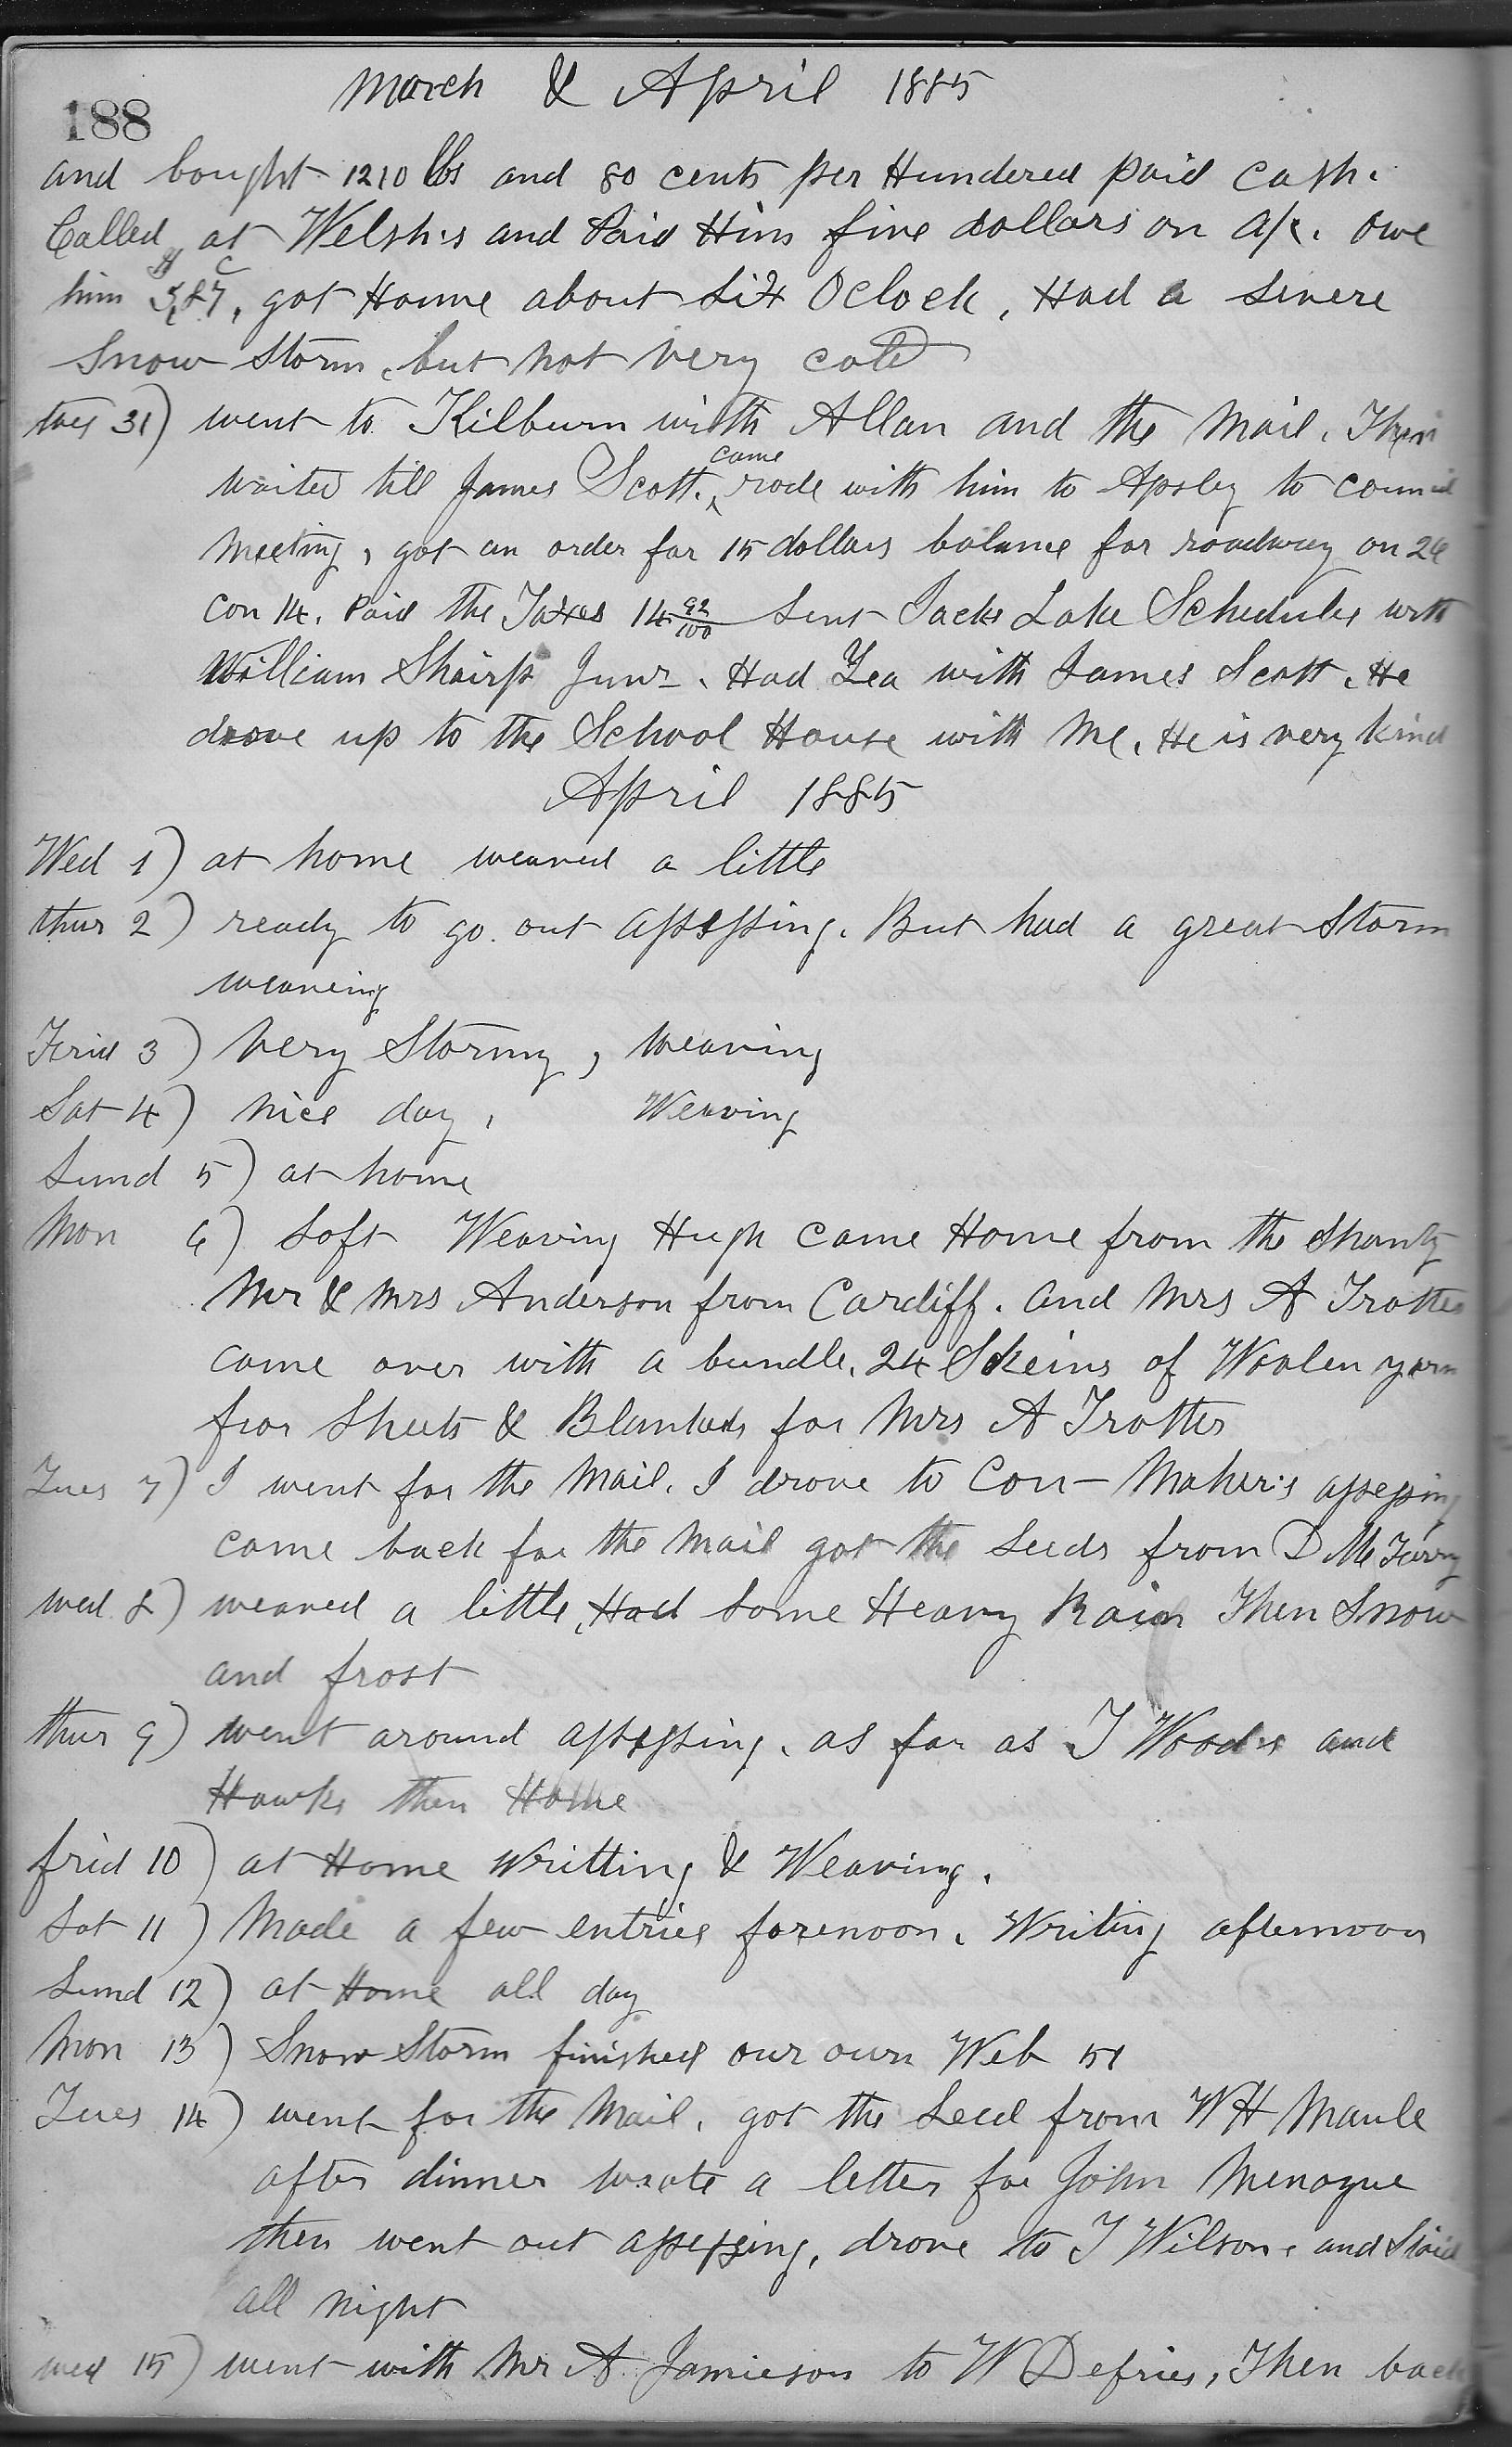 188
March & April 1885
and bought 1210 lbs and 80 cents per Hundered paid cash.
Called at Welsh's and Paid Him five dollars on a/c. owe
him got Home about Six Oclock, Had a Severe
Snow Storm, but not very cold
tues 31) went to Kilburn with Allan and the Mail. Then
waited till James Scott. came rode with him to Apsley to council
Meeting, got an order for 15 dollars balance for roadway on 26
con 14. Paid the Taxes 14 92/100 Sent Jacks Lake Schedules with
William Shairp Junr. Had Tea with James Scott. He
drove up to the School House with Me. He is very kind
April 1885
Wed 1) at home weaved a little
thur 2) ready to go out assessing. But had a great Storm
weaving
Frid 3) Very Stormy, weaving
Sat 4) Nice day, Weaving
Sund 5) at home
Mon 6) Soft Weaving Hugh came Home from the Shanty
Mr & Mrs Anderson from Cardiff. and Mrs A Trotter
came over with a bundle. 24 Skeins of Woolen yarn
for Sheets & Blankets for Mrs A Trotter
Tues 7) I went for the Mail. I drove to Con Maher's assessing
came back for the Mail got the Seeds from D
wed 8) weaved a little, Had Some Heavy Rain Then Snow
and frost
thur 9) went around assessing. as far as T Wood's and
Hawks then Home
frid 10) at Home Writting & Weaving.
Sat 11) Made a few entries forenoon. Writing afternoon
Sund 12) at Home all day
Mon 13) Snow Storm finished our own Web 51
Tues 14) went for the Mail. got the Seed from W H Maule
after dinner wrote a letter for John Menogue
then went out assessing, drove to T Wilsons and Staid
all night
wed 15) went with Mr A Jamieson to W Defries, Then back